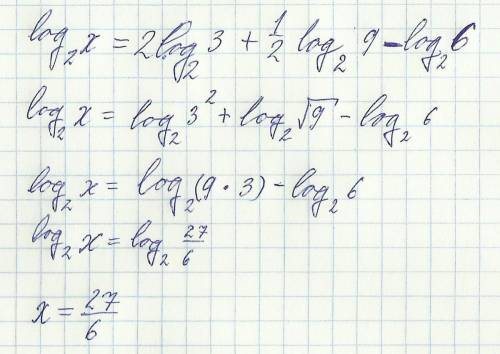 log₂ x = 2log₂ 3 + 1/2 log₂ 9 - log₂ 6
log₂ x = log₂ 3² + log₂ √9 - log₂ 6
log₂ x = log₂ (9 · 3) - log₂ 6
log₂ x = log₂ 27/6
x = 27/6